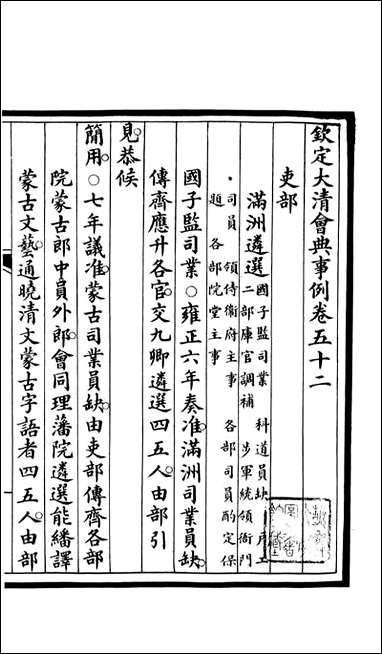 欽定大清會典事例卷五十二
吏部
滿洲遴選 國子監司業 科道員缺 戶工
二部庫官調補 步軍統領衙門
司員 領侍衛府主事 各部司員酌定保
題 各部院堂主事
國子監司業○雍正六年奏准滿洲司業員缺
傳齊應升各官交九卿遴選四五人由部引
見恭候
簡用○七年議准蒙古司業員缺由吏部傳齊各部
院蒙古郎中員外郎會同理藩院遴選能繙譯
蒙古文藝通曉清文蒙古字語者四五人由部